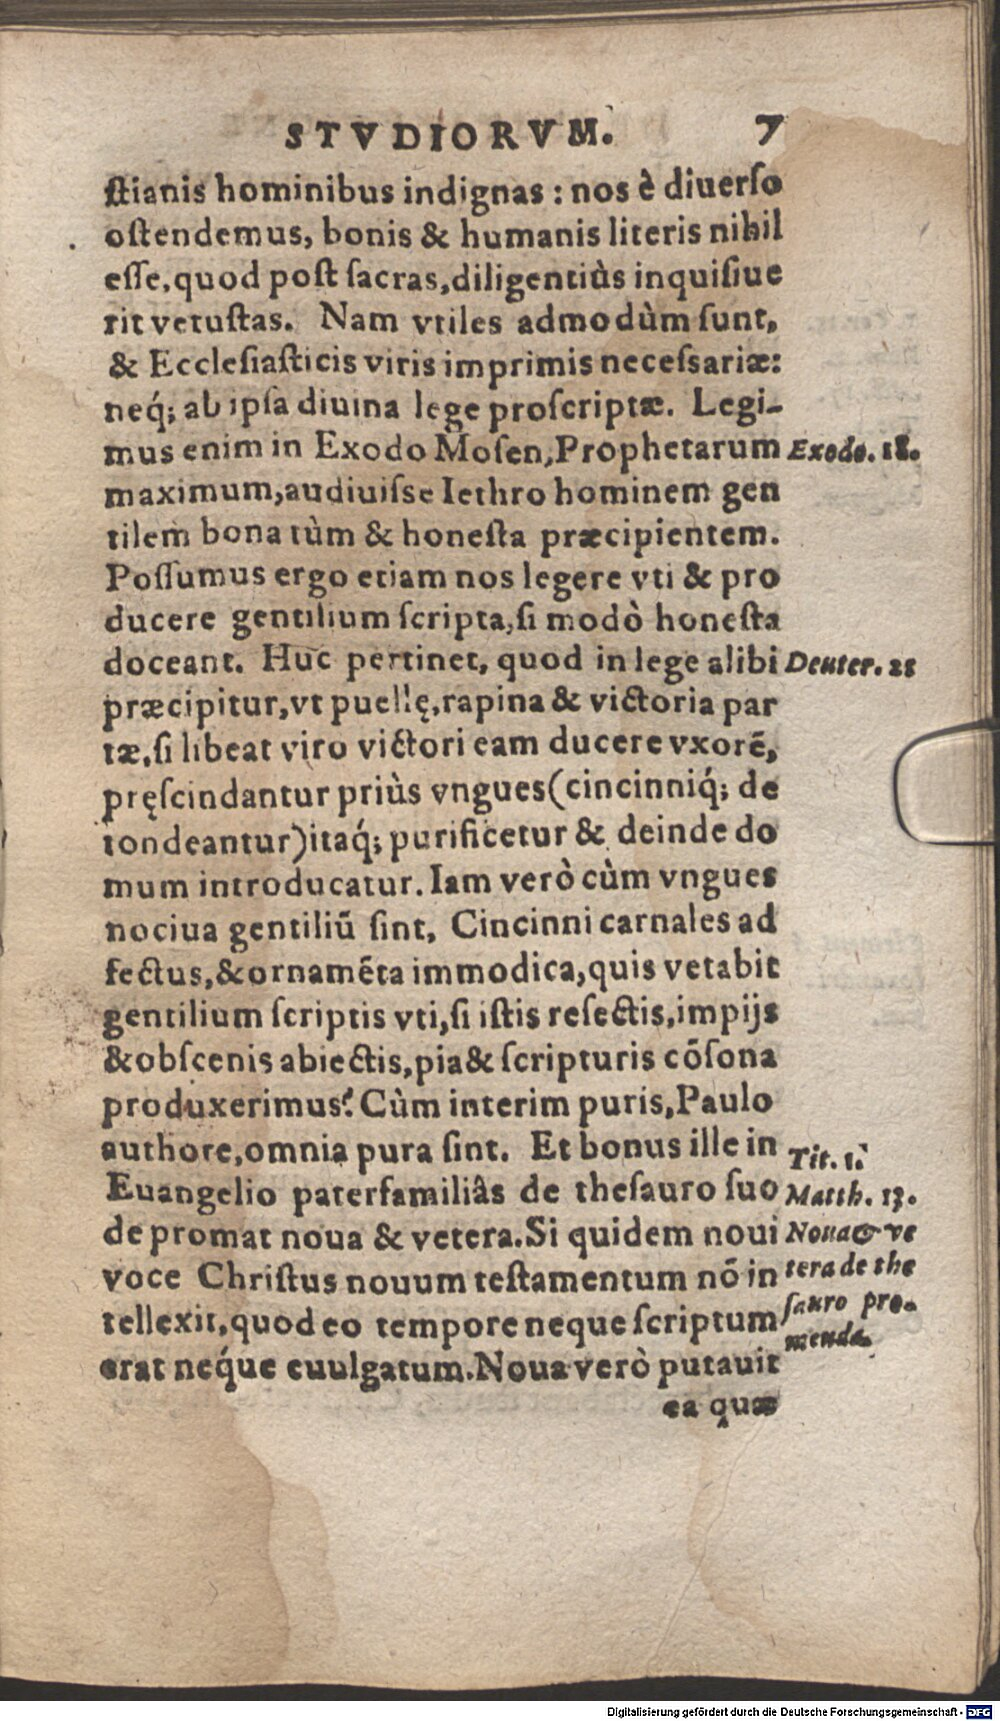 STVDIORVM. 7
ſtianis hominibus indignas : nos è diuerſo
oſtendemus, bonis & humanis literis nihil
eſſe, quod poſt ſacras, diligentiùs inquiſiue
rit vetuſtas. Nam vtiles admodùm ſunt,
& Eccleſiaſticis viris imprimis neceſsariæ:
neq́; ab ipſa diuina lege proſcriptæ. Legi-
mus enim in Exodo Moſen, Prophetarum
Exodo. 18.
maximum, audiuiſse Iethro hominem gen
tilem bona tùm & honeſta præcipientem.
Poſſumus ergo etiam nos legere vti & pro
ducere gentilium ſcripta, ſi modò honeſta
doceant. Huc pertinet, quod in lege alibi
Deuter. 21
præcipitur, vt puellę, rapina & victoria par
tæ, ſi libeat viro victori eam ducere vxorē,
pręſcindantur priùs vngues (cincinniq́; de
tondeantur) itaq́; purificetur & deinde do
mum introducatur. Iam verò cùm vngues
nociua gentiliū ſint, Cincinni carnales ad
fectus, & ornamēta immodica, quis vetabit
gentilium ſcriptis vti, ſi iſtis reſectis, impijs
& obſcenis abiectis, pia & ſcripturis cōſona
produxerimus? Cùm interim puris, Paulo
authore, omnia pura ſint. Et bonus ille in
Tit. 1.
Euangelio paterfamiliâs de theſauro ſuo
Matth. 13.
de promat noua & vetera. Si quidem noui
Noua & ve
voce Chriſtus nouum teſtamentum nō in
tera de the
tellexit, quod eo tempore neque ſcriptum
ſauro pro-
menda.
erat neq́ue euulgatum. Noua verò putauit
ea quæ
Digitalisierung gefördert durch die Deutsche Forschungsgemeinschaft - DFG